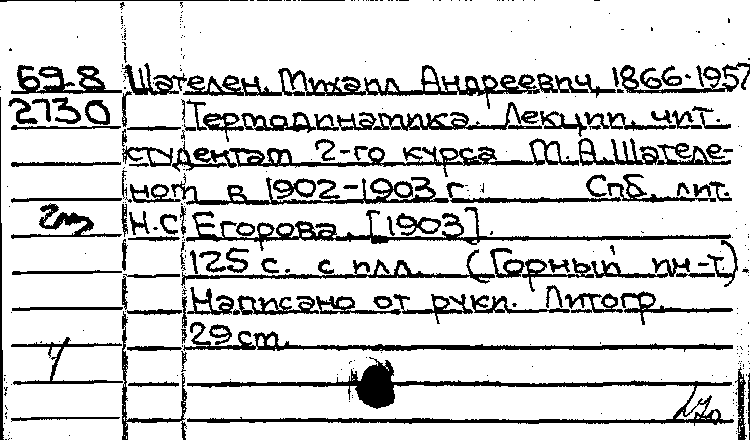 69-8 Шателен, Михаил Андреевич, 1866-1957
2730 Термодинамика. Лекции, чит.
студентам 2-го курса М.А.Шателе-
ном в 1902-1903 г. Спб, лит.
Н.С. Егорова, [1903].
125 с. с илл. (Горный ин-т).
Написано от руки. Литогр.
29 см.